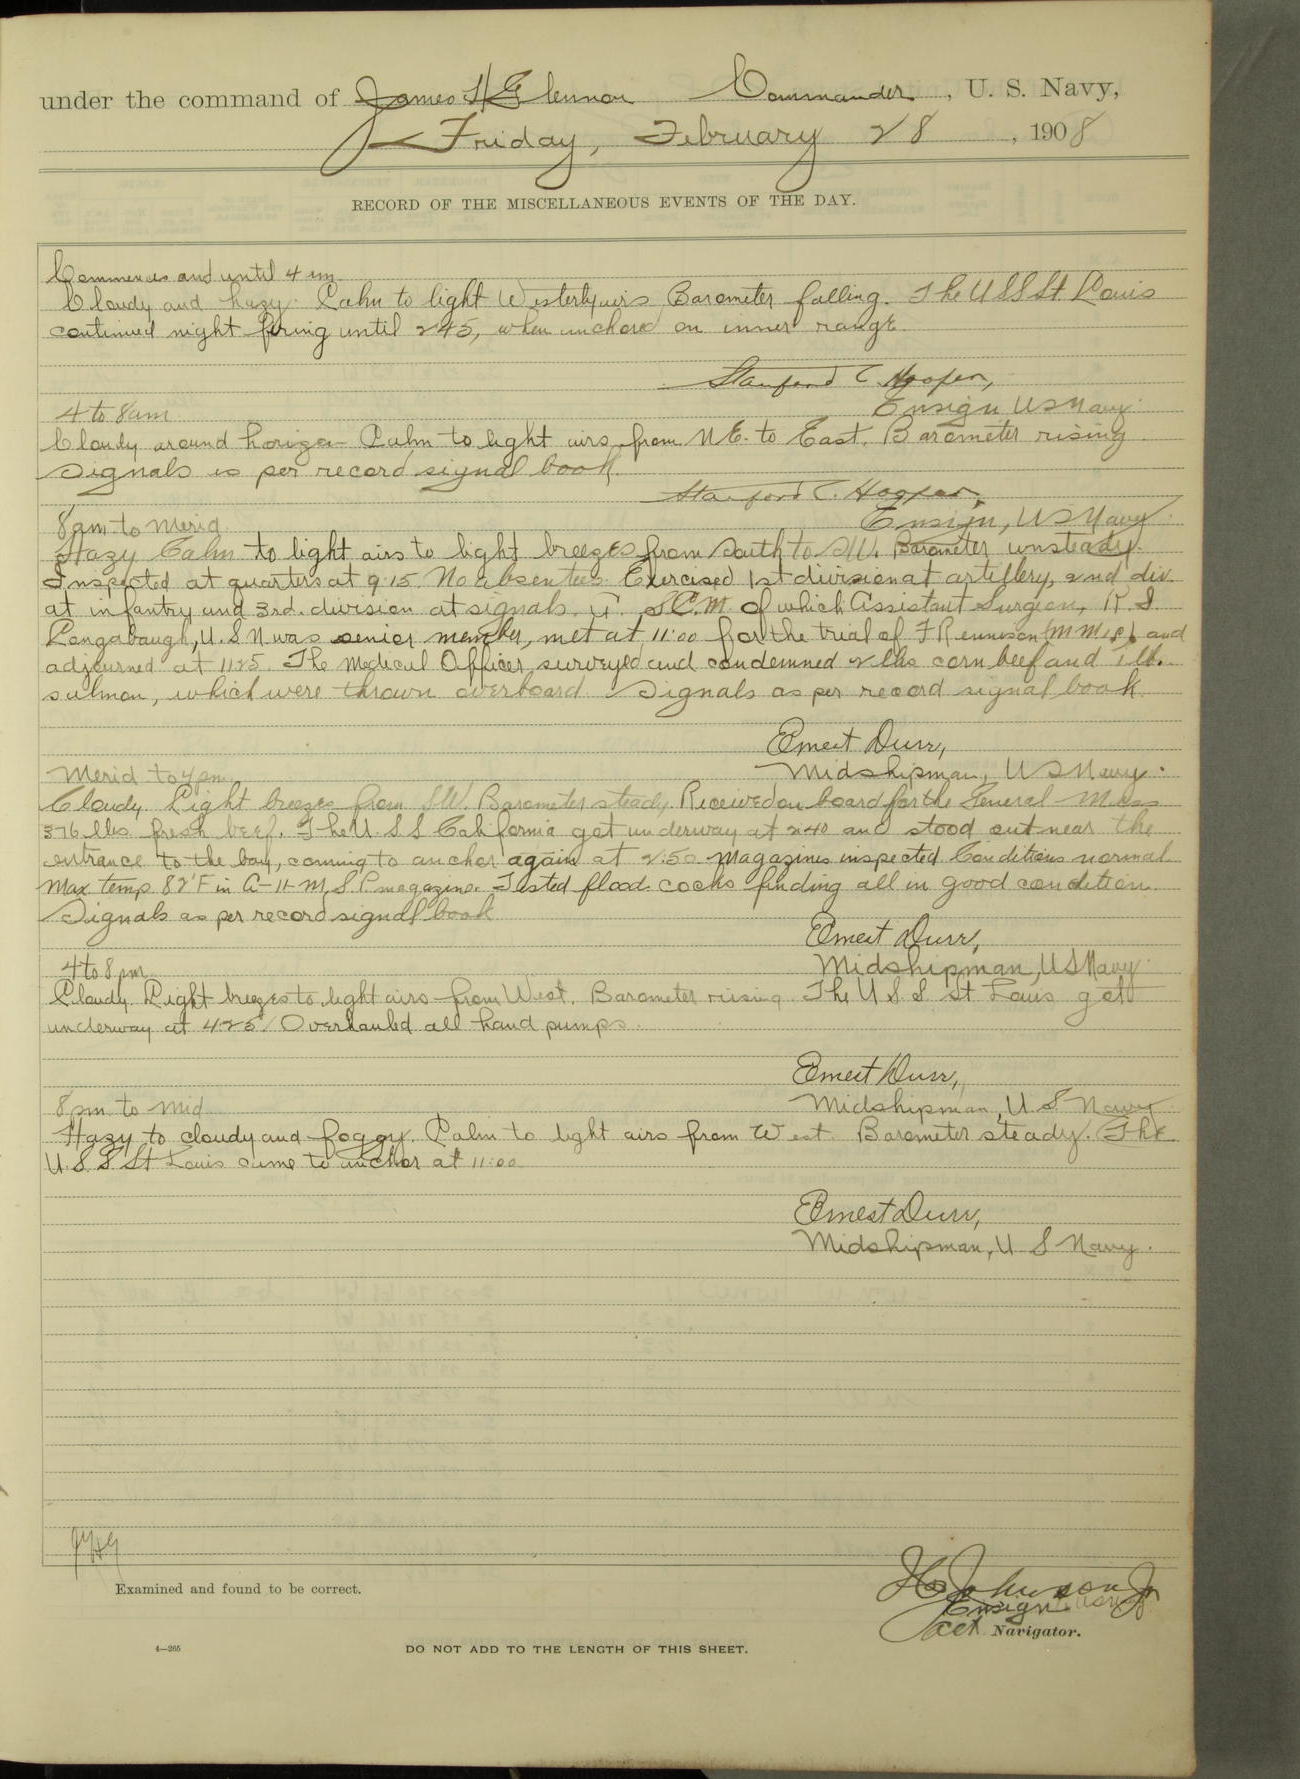 under the command of James H Glennon Commander, U. S. Navy,
Friday, February 28, 1908
RECORD OF THE MISCELLANEOUS EVENTS OF THE DAY.
Commences and until 4 am
Cloudy and hazy. Calm to light Westerly airs Barometer falling. The U S S St Louis
continued night firing until 2:45, when anchored on inner range.
Stanford C Hooper,
Ensign US Navy.
4 to 8 am
Cloudy around horizon Calm to light airs from NE. to East. Barometer rising
Signals as per record signal book.
Stanford C. Hooper,
Ensign, US Navy
8 am to Merid
Hazy Calm to light airs to light breezes from South to SW. Barometer unsteady.
Inspected at quarters at 9:15 No absentees. Exercised 1st division at artillery, 2nd div.
at infantry and 3rd. division at signals. A S.C.M. of which Assistant Surgeon, R. I.
Longabaugh, U.S N was senior member, met at 11:00 for the trial of F Rennison (M M 1st) and
adjourned at 11:25. The Medical Officer surveyed and condemned 2 lbs corn beef and 1 lb.
salmon, which were thrown overboard Signals as per record signal book
Ernest Durr,
Midshipman, US Navy.
Merid to 4 pm
Cloudy. Light breezes from SW. Barometer steady, Received on board for the General Mess
376 lbs fresh beef. The U. S S California got underway at 2:40 and stood out near the
entrance to the bay, coming to anchor again at 2:50 Magazines inspected Conditions normal
Max temp. 82°F in A-11-M, S.P. magazine. Tested flood cocks finding all in good condition.
Signals as per record signal book
Ernest Durr,
Midshipman, US Navy.
4 to 8 pm
Cloudy. Light breezes to light airs from West. Barometer rising. The U S. S. St Louis got
underway at 4:25. Overhauled all hand pumps.
Ernest Durr,
Midshipman, U. S Navy
8 pm to Mid
Hazy to cloudy and foggy. Calm to light airs from West. Barometer steady. The
U. S. S St Louis came to anchor at 11:00
Ernest Durr,
Midshipman, U S Navy.
JHG
Examined and found to be correct.
Johnson Jr
Ensign USN
act. Navigator.
4—265
DO NOT ADD TO THE LENGTH OF THIS SHEET.